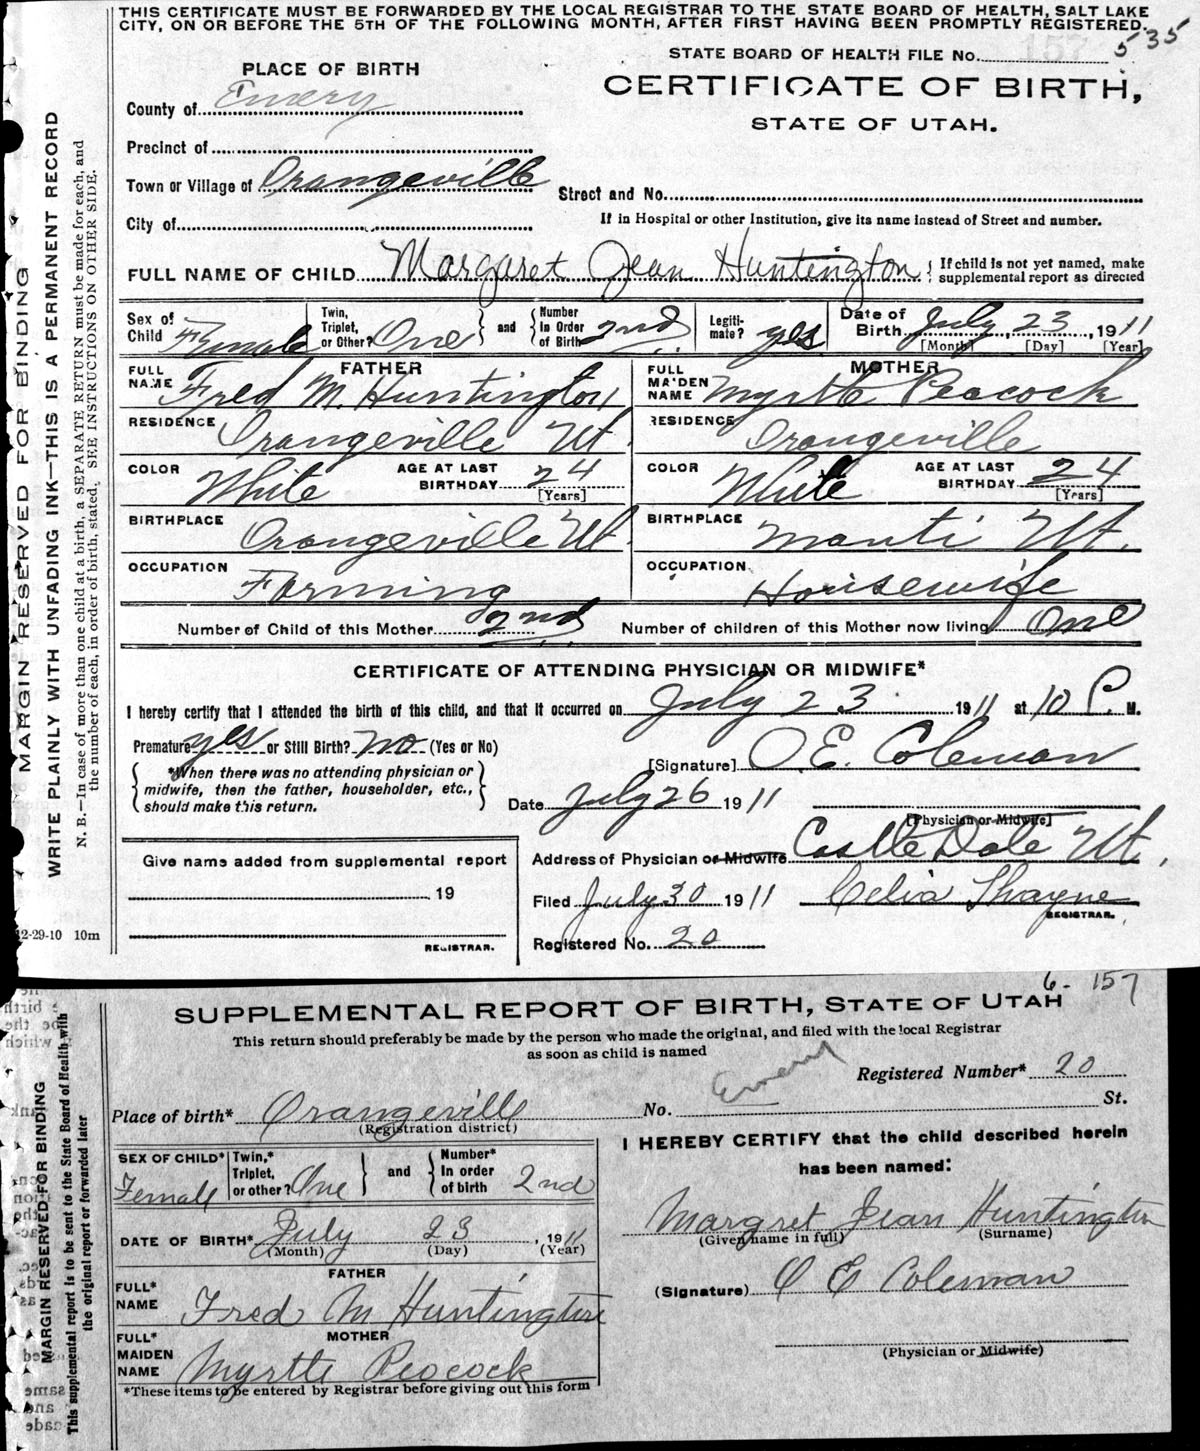 THIS CERTIFICATE MUST BE FORWARDED BY THE LOCAL REGISTRAR TO THE STATE BOARD OF HEALTH, SALT LAKE
CITY, ON OR BEFORE THE 5TH OF THE FOLLOWING MONTH, AFTER FIRST HAVING BEEN PROMPTLY REGISTERED.
535
STATE BOARD OF HEALTH FILE No.
PLACE OF BIRTH
CERTIFICATE OF BIRTH,
STATE OF UTAH.
County of Emery
Precinct of
Town or Village of Orangeville
Street and No.
City of
If in Hospital or other Institution, give its name instead of Street and number.
FULL NAME OF CHILD Margaret Jean Huntington { If child is not yet named, make
supplemental report as directed
Sex of Child Female
Twin, Triplet, or Other? One } and { Number In Order of Birth 2nd
Legiti-mate? yes
Date of Birth July 23, 1911
[Month] [Day] [Year]
FATHER
FULL NAME Fred M. Huntington
MOTHER
FULL MAIDEN NAME Myrtle Peacock
RESIDENCE Orangeville Ut.
RESIDENCE Orangeville
COLOR White AGE AT LAST BIRTHDAY 24 [Years]
COLOR White AGE AT LAST BIRTHDAY 24 [Years]
BIRTHPLACE Orangeville Ut.
BIRTHPLACE Manti Ut.
OCCUPATION Farming
OCCUPATION Housewife
Number of Child of this Mother 2nd Number of children of this Mother now living One
CERTIFICATE OF ATTENDING PHYSICIAN OR MIDWIFE*
I hereby certify that I attended the birth of this child, and that it occurred on July 23 1911 at 10 P. M.
Premature yes or Still Birth? no (Yes or No)
[Signature] O. E. Coleman
{ *When there was no attending physician or
midwife, then the father, householder, etc.,
should make this return. }
Date July 26 1911
[Physician or Midwife]
Address of Physician or Midwife Castle Dale Ut.
Give name added from supplemental report
19
REGISTRAR.
Filed July 30 1911 Celia Thayne
REGISTRAR.
Registered No. 20
12-29-10 10m
MARGIN RESERVED FOR BINDING
WRITE PLAINLY WITH UNFADING INK—THIS IS A PERMANENT RECORD
N. B.—In case of more than one child at a birth, a SEPARATE RETURN must be made for each, and
the number of each, in order of birth, stated. SEE INSTRUCTIONS ON OTHER SIDE.
6- 157
SUPPLEMENTAL REPORT OF BIRTH, STATE OF UTAH
This return should preferably be made by the person who made the original, and filed with the local Registrar
as soon as child is named
Emery
Registered Number* 20
Place of birth* Orangeville
(Registration district)
No. St.
SEX OF CHILD* Female
Twin,* Triplet, or other? One } and { Number* In order of birth 2nd
I HEREBY CERTIFY that the child described herein
has been named:
DATE OF BIRTH* July 23, 1911
(Month) (Day) (Year)
Margret Jean Huntington
(Given name in full) (Surname)
FATHER
FULL* NAME Fred M Huntington
(Signature) O E Coleman
MOTHER
FULL* MAIDEN NAME Myrtle Peacock
(Physician or Midwife)
*These items to be entered by Registrar before giving out this form
MARGIN RESERVED FOR BINDING
This supplemental report is to be sent to the State Board of Health with
the original report or forwarded later